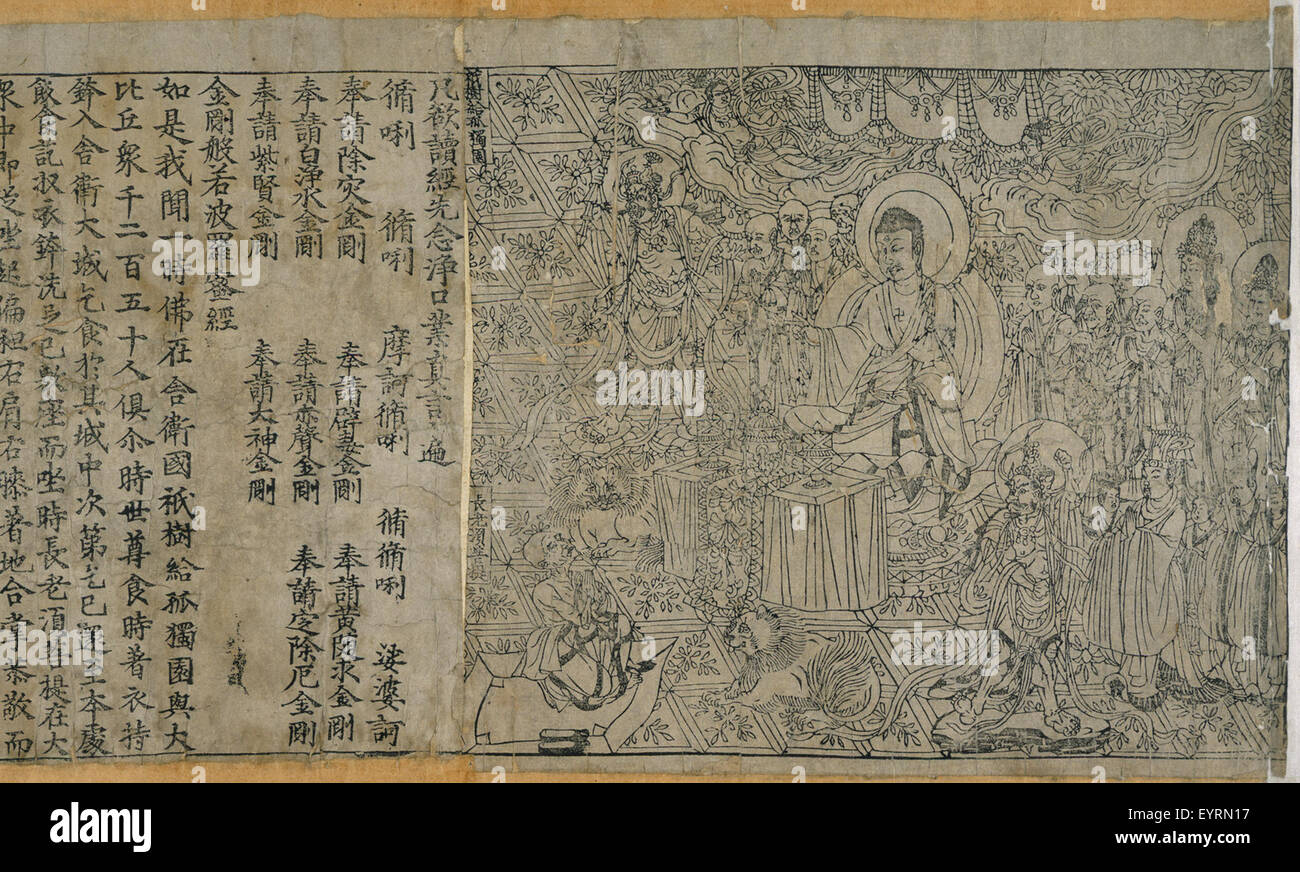 祇樹給孤獨園
長老須菩提
凡欲讀經先念淨口業真言 遍
脩唎 脩唎 摩訶脩唎 脩脩唎 娑婆訶
奉請除灾金剛 奉請辟毒金剛 奉請黃隨求金剛
奉請白淨水金剛 奉請赤聲金剛 奉請定除厄金剛
奉請紫賢金剛 奉請大神金剛
金剛般若波羅蜜經
如是我聞一時佛在舍衛國祇樹給孤獨園與大
比丘衆千二百五十人俱尒時世尊食時著衣持
鉢入舍衛大城乞食於其城中次第乞已還至本處
飯食訖収衣鉢洗足已敷座而坐時長老須菩提在大
衆中即從坐起偏袒右肩右膝著地合掌恭敬而
alamy
alamy
alamy
Image ID: EYRN17
www.alamy.com